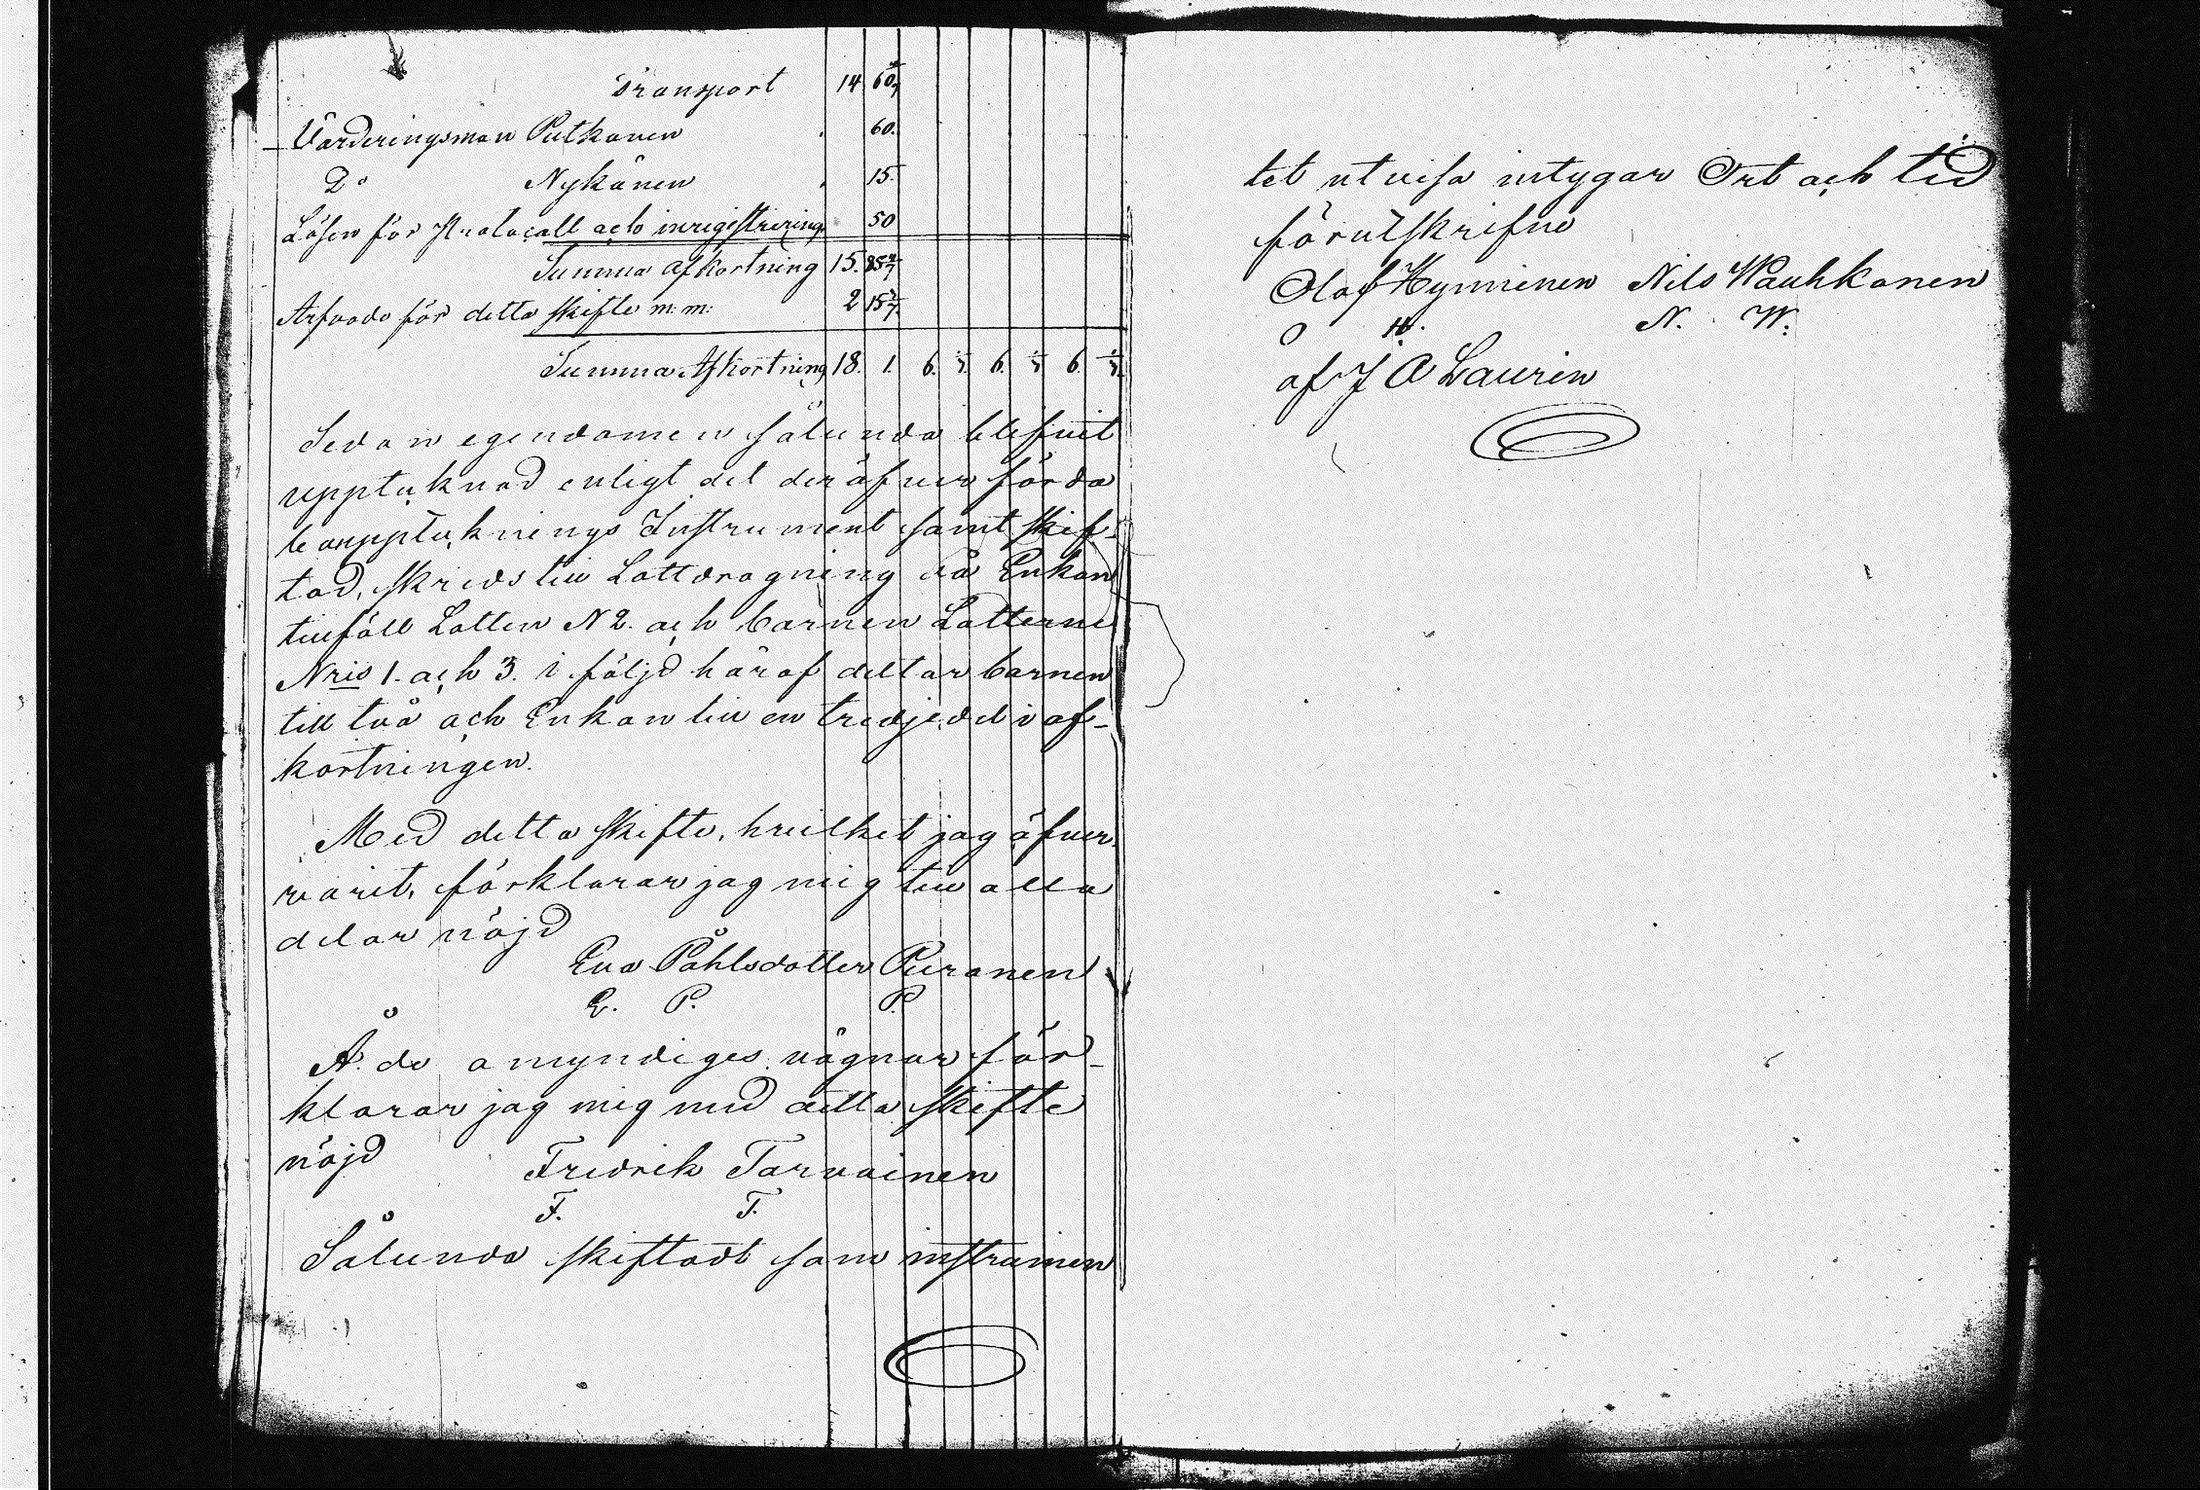 Transport 14 60 4/7
Värderingsman Putkonen . 60.
D:o Nykänen . 15.
Lösen för Protocoll och inregistrering 50
Summa afkortning 15. 85 4/7
Arfvode för detta skifte m: m: 2 15 3/7
Summa Afkortning 18. 1. 6. 6. 6.
Sedan egendomen sålunda blifvit
upptecknad enligt det deröfver förda
bouppteknings Instrument samt skif-
tad, skreds till Lottdragning då Enkan
tillföll Lotten N 2. och barnen Lotterne
Nris 1. och 3. i följd häraf deltar barnen
till två och Enkan till en tredjedel i af-
kortningen.
Med detta skifte, hvilket jag öfver-
varit, förklarar jag mig till alla
delar nöjd
Eva Påhlsdotter Puranen
E. P. P.
Å de omyndiges vägnar för-
klarar jag mig med detta skifte
nöjd Fredrik Tarvainen
F. T.
Sålunda skiftadt som instrumen
tet utvisa intygar Ort och tid
förutskrifne
Olof Hynninen Nils Wauhkonen
O H. N. W.
af J A Laurin